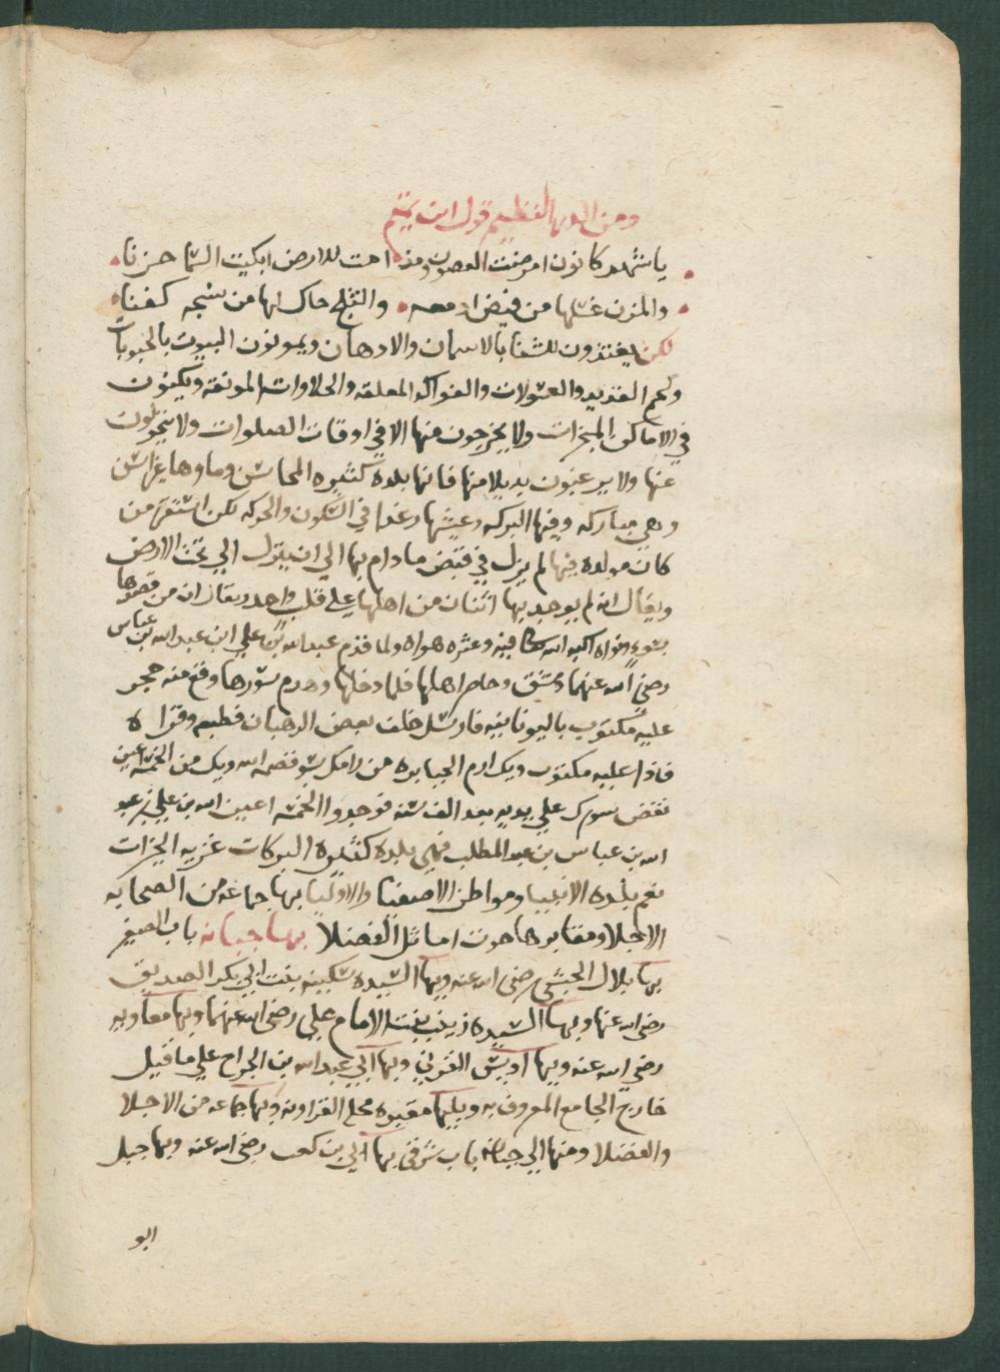 ومن العظيم قول ابن تميم
يا شهر كانون امرضت الغصون ومذ امت للارض ابكيت السما حزنا
والمزن غسلها من فيض ادمعه والثلج حاك لها من نسجه كفنا
لكن يعتدون للشتا بالاسمان والادهان ويمونون البيوت بالحبوبات
ولحم القديد والعسولات والفواكه المعلقه والحلاوات المونقه ويكنون
في الاماكن المبخرات ولا يخرجون منها الا في اوقات الصلوات ولا يتحولون
عنها ولا يرغبون بديلا منها فانها بلدة كثيره المحاسن وماوها غير اسن
وهي مباركه وفيها البركه وعيشها رغدا في السكون والحركه لكن استقري من
كان مولده فيها لم يزل في قبض ما دام بها الي ان ينزل الي تحت الارض
ويقال انه لم يوجد بها اثنان من اهلها علي قلب واحد ويقال ان من
هواه ولما قدم عبد الله بن علي ابن عبد الله بن عباس
رضي الله عنهما دمشق وحاصر اهلها فلما دخلها وهدم سورها وقع منه حجر
عليه مكتوب باليونانيه فارسل خلف بعض الرهبان فطبع وقراه
فاذا عليه مكتوب ويك ارم الجبابره من رامك بسو قصمه الله ويك من الخمسه اعين
نقض سورك علي يديه بعد الف سنه فوجدوا الخمسه اعين الله بن علي بن عبد
الله بن عباس بن عبد المطلب فهي بلدة كثيرة البركات غزيره الخيرات
نعم بلدة الانبيا ومواطن الاصفيا والاوليا بها جماعة من الصحابه
الاجلا ومقابرها حوت اماثل الفضلا بها جبانه باب الصغير
بها بلال الحبشي رضي الله عنه وبها السيده سكينه بنت ابي بكر الصديق
رضي الله عنها وبها السيده زينب بنت الامام علي رضي الله عنهما وبها معاويه
رضي الله عنه وبها اويس القرني وبها ابي عبد الله بن الجراح علي ما قيل
خارج الجامع المعروف به ويليها مقبره محلع القراونه وبها جماعه من الاجلا
والفضلا ومنها الي جبانه باب شرقي بها ابي بن كعب رضي الله عنه وبها جبل
ابو